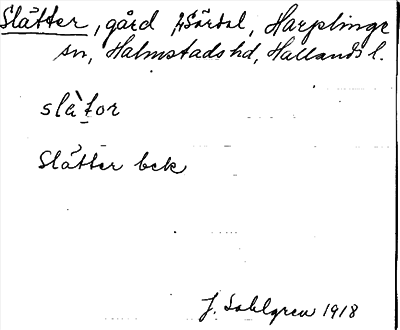 Slåtter, gård i Särdal, Harplinge
sn, Halmstads hd, Hallands l.
slàtor
Slåtter bek
J. Sahlgren 1918